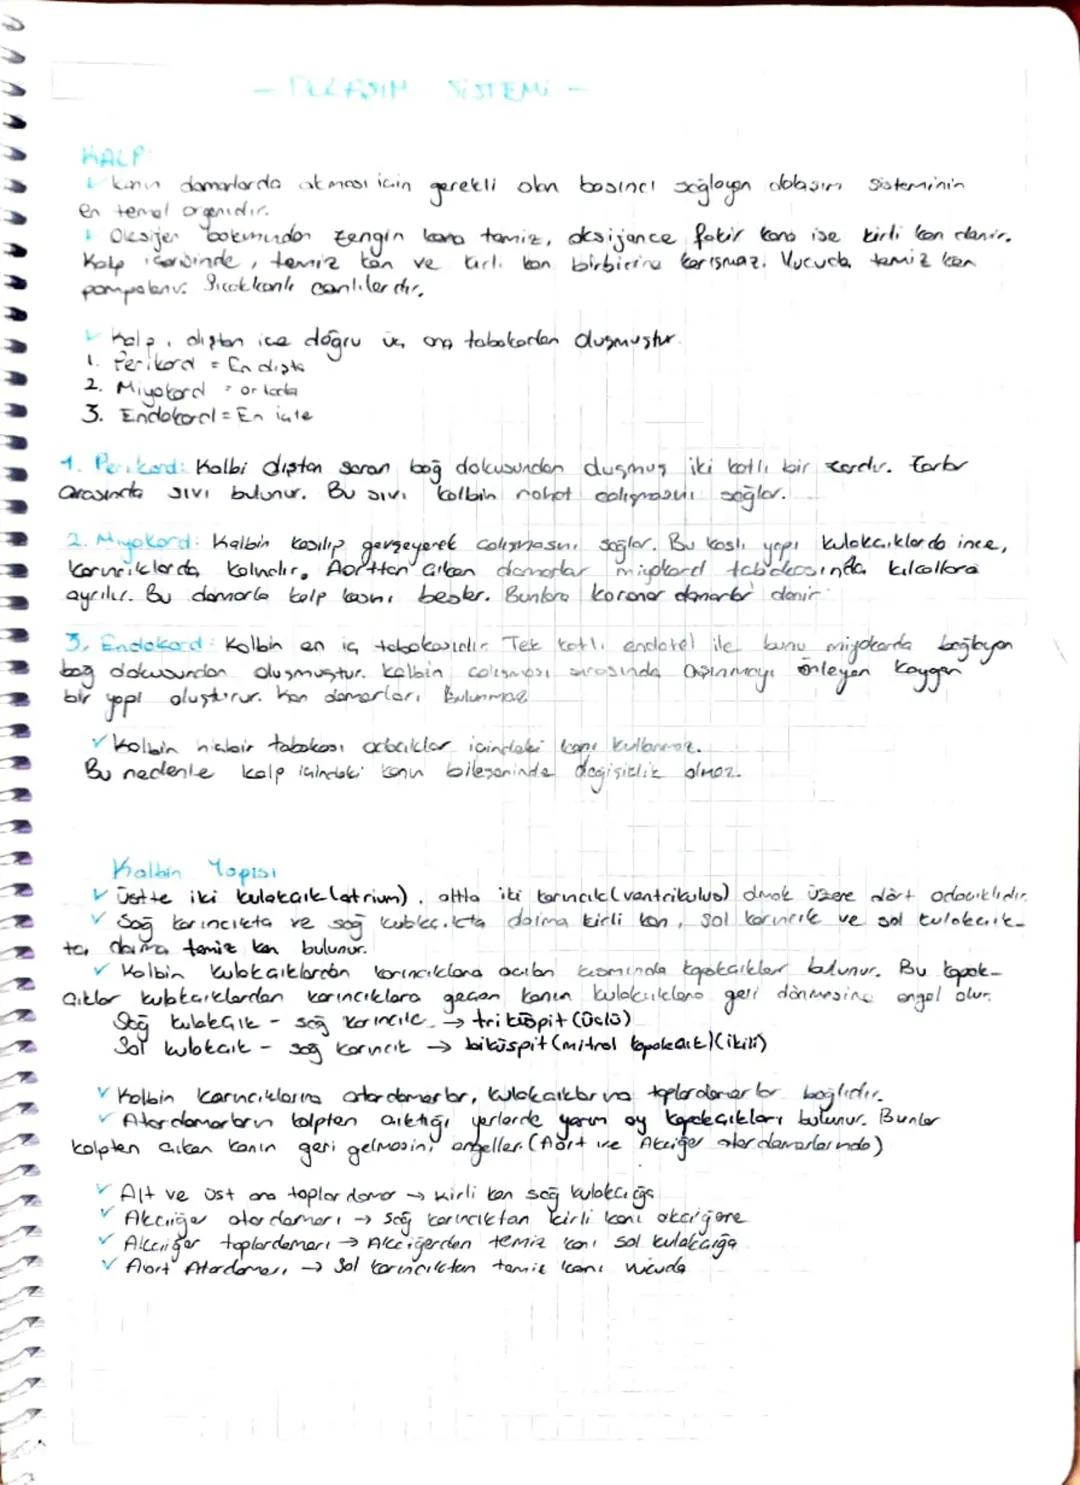 - DOLAŞIM SİSTEMİ -
KALP
✓ Kanın damarlarda akması için gerekli olan basıncı sağlayan dolaşım sisteminin
en temel organıdır.
✓ Oksijen bakımından zengin kana temiz, oksijence fakir kana ise kirli kan denir.
Kalp içerisinde, temiz kan ve kirli kan birbirine karışmaz. Vücuda temiz kan
pompalanır. Sıcakkanlı canlılardır.
✓ Kalp, dıştan içe doğru üç ana tabakadan oluşmuştur.
1. Perikard = En dışta
2. Miyokard = ortada
3. Endokard = En içte
1. Perikard: Kalbi dıştan saran bağ dokusundan oluşmuş iki katlı bir zardır. Zarlar
arasında sıvı bulunur. Bu sıvı kalbin rahat çalışmasını sağlar.
2. Miyokard: Kalbin kasılıp gevşeyerek çalışmasını sağlar. Bu kaslı yapı kulakçıklarda ince,
karıncıklarda kalındır. Aorttan çıkan damarlar miyokard tabakasında kılcallara
ayrılır. Bu damarla kalp kasını besler. Bunlara koroner damarlar denir.
3. Endokard: Kalbin en iç tabakasıdır. Tek katlı endotel ile bunu miyokarda bağlayan
bağ dokusundan oluşmuştur. Kalbin çalışması sırasında aşınmayı önleyen kaygan
bir yapı oluşturur. Kan damarları Bulunmaz
✓ Kalbin hiçbir tabakası odacıklar içindeki kanı kullanmaz.
Bu nedenle kalp içindeki kanın bileşeninde değişiklik olmaz.
Kalbin Yapısı
✓ Üstte iki kulakçık (atrium), altta iki karıncık (ventrikulus) olmak üzere dört odacıklıdır.
✓ Sağ karıncıkta ve sağ kulakçıkta daima kirli kan, sol karıncık ve sol kulakcık-
ta, daima temiz kan bulunur.
✓ Kalbin kulakçıklardan karıncıklara açılan kısmında kapakçıklar bulunur. Bu kapak-
çıklar kulakçıklardan karıncıklara geçen kanın kulakçıklara geri dönmesine engel olur.
Sağ kulakçık - sağ karıncık → triküspit (Üçlü)
Sol kulakçık - sağ karıncık → biküspit (mitral kapakçık) (ikili)
✓ Kalbin karıncıklarına atardamarlar, kulakçıklarına toplardamarlar bağlıdır.
✓ Atardamarların kalpten çıktığı yerlerde yarım ay kapakçıkları bulunur. Bunlar
kalpten çıkan kanın geri gelmesini engeller. (Aort ve Akciğer atardamarlarında)
✓ Alt ve üst ana toplardamar → kirli kan sağ kulakçığa
✓ Akciğer atardamarı → sağ karıncıktan kirli kanı akciğere
✓ Akciğer toplardamarı → Akciğerden temiz kanı sol kulakçığa
✓ Aort Atardamarı → Sol karıncıktan temiz kanı vücuda